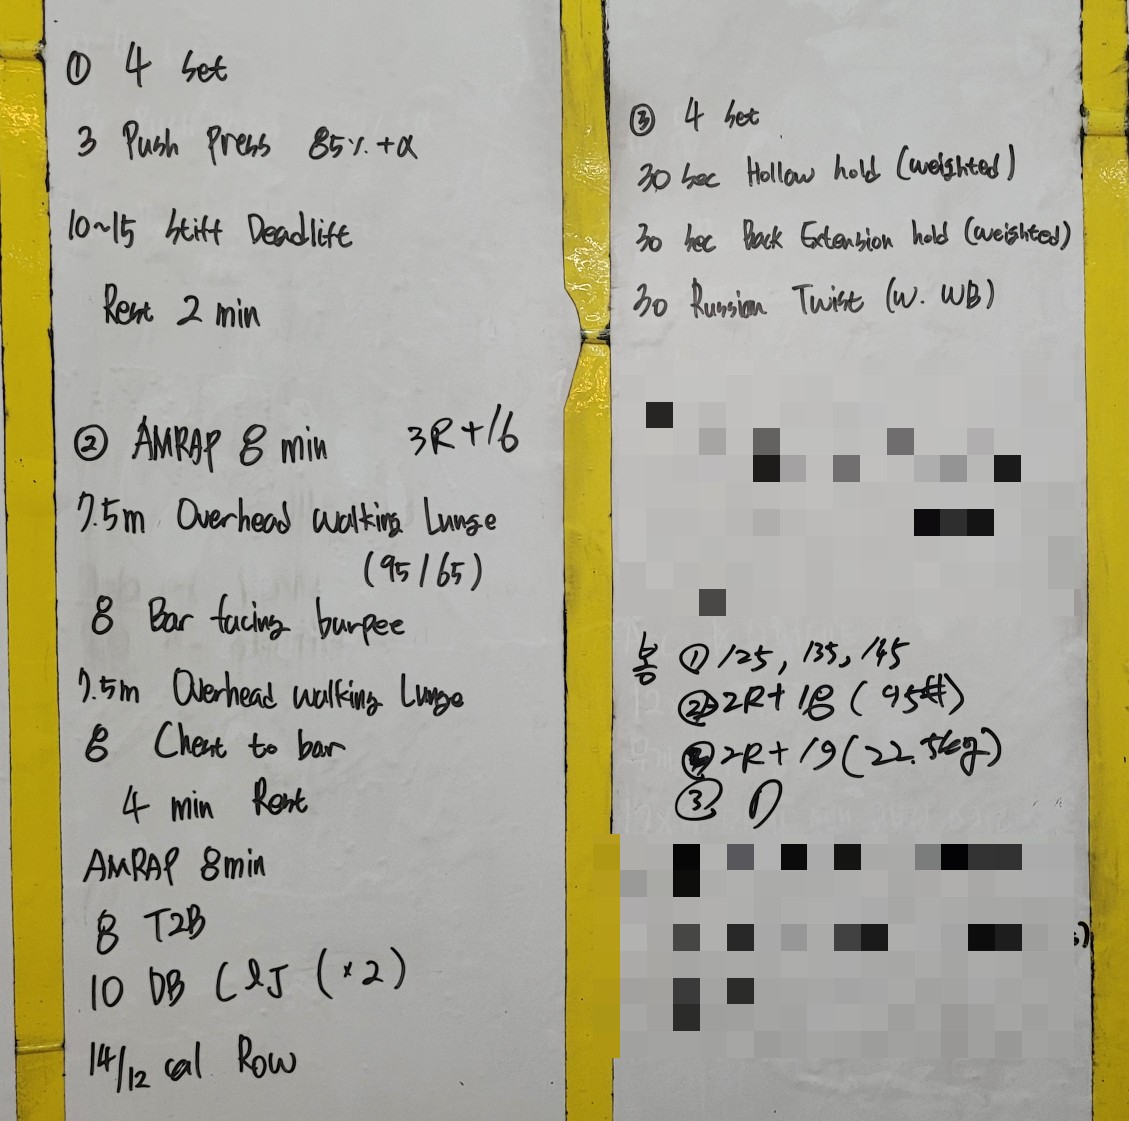 ① 4 set
3 Push Press 85% +α
10~15 Stiff Deadlift
Rest 2 min
② AMRAP 8 min 3R+16
7.5m Overhead walking Lunge
(95/65)
8 Bar facing burpee
7.5m Overhead walking Lunge
8 Chest to bar
4 min Rest
AMRAP 8min
8 T2B
10 DB C&J (×2)
14/12 cal Row
③ 4 set
30 sec Hollow hold (weighted)
30 sec Back Extension hold (weighted)
30 Russian Twist (w. WB)
① 125, 135, 145
② 2R+18 (95#)
2R+19 (22.5kg)
③